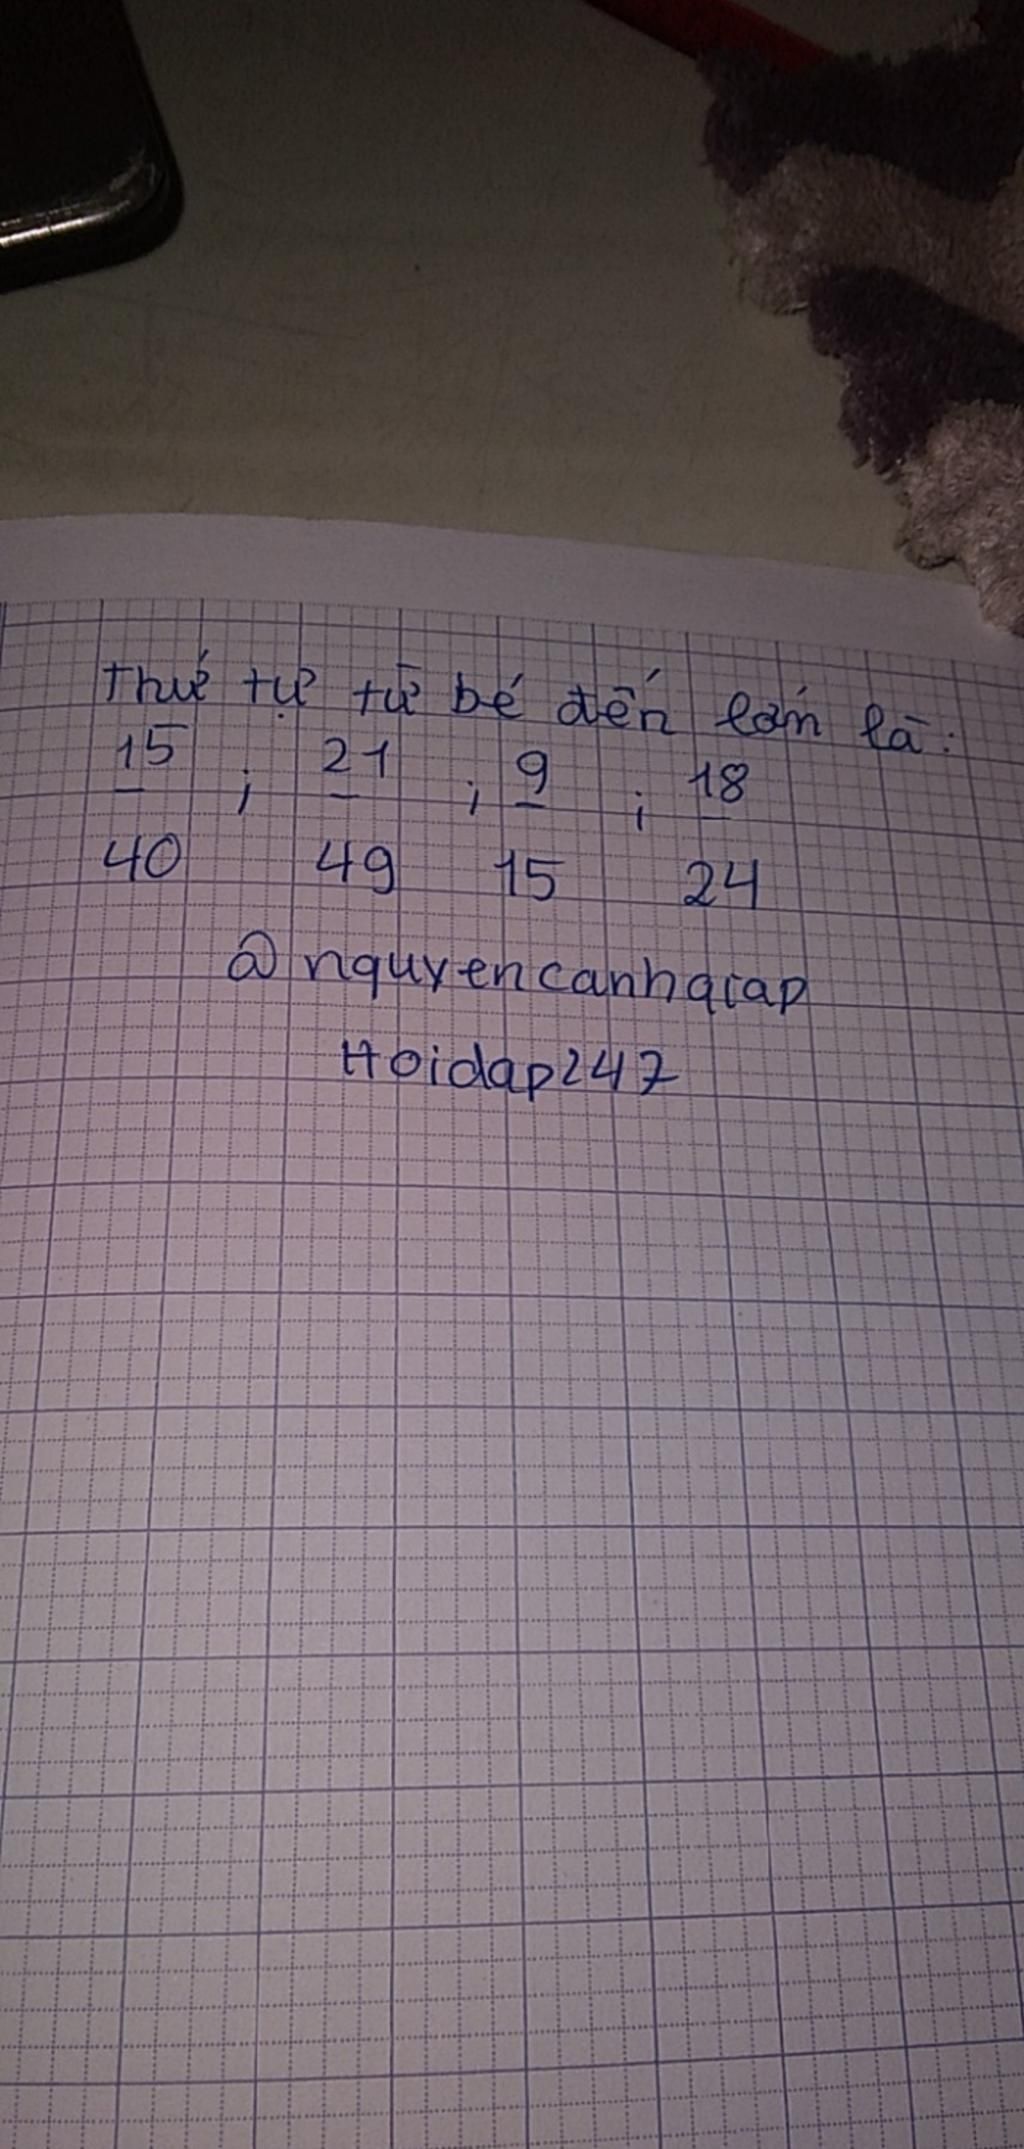 Thứ tự từ bé đến lớn là:
15 ; 21 ; 9 ; 18
40 49 15 24
@nguyencanhgiap
Hoidap247